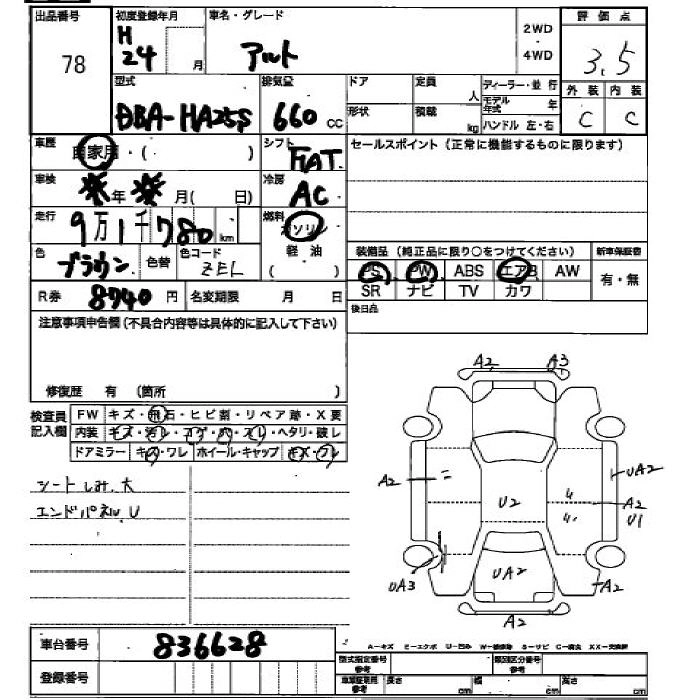 出品番号
78
初度登録年月
H
24 月
車名・グレード
アルト
2WD
・
4WD
評価点
3.5
型式
DBA-HA25S
排気量
660 cc
ドア
形状
定員
人
積載
kg
ディーラー・並行
モデル年式 年
ハンドル 左・右
外装
内装
C
C
車歴
自家用・( )
シフト
FAT
セールスポイント(正常に機能するものに限ります)
車検
年 月( 日)
冷房
AC
走行
9万1千780km
燃料
ガソリン
軽油
( )
色
ブラウン
色替
色コード
ZEL
装備品(純正品に限り○をつけてください)
新車保証書
PS PW ABS エアB AW
SR ナビ TV カワ
有・無
R券 8740円
名変期限 月 日
後日品
注意事項申告欄(不具合内容等は具体的に記入して下さい)
修復歴 有 (箇所 )
検査員
記入欄
FW キズ・飛石・ヒビ割・リペア跡・X要
内装 キズ・汚レ・コゲ・穴・スレ・ヘタリ・破レ
ドアミラー キズ・ワレ ホイール・キャップ キズ・ワレ
シートしみ、大
エンドパネル、U
A2
A3
A2
U2
UA2
A2
U1
UA3
UA2
A2
A2
車台番号
836628
A-キズ E-エクボ U-凹み W-補修跡 S-サビ C-腐食 XX-交換済
登録番号
型式指定番号
参考
類別区分番号
参考
車庫証明用
参考
長さ cm
幅 cm
高さ cm